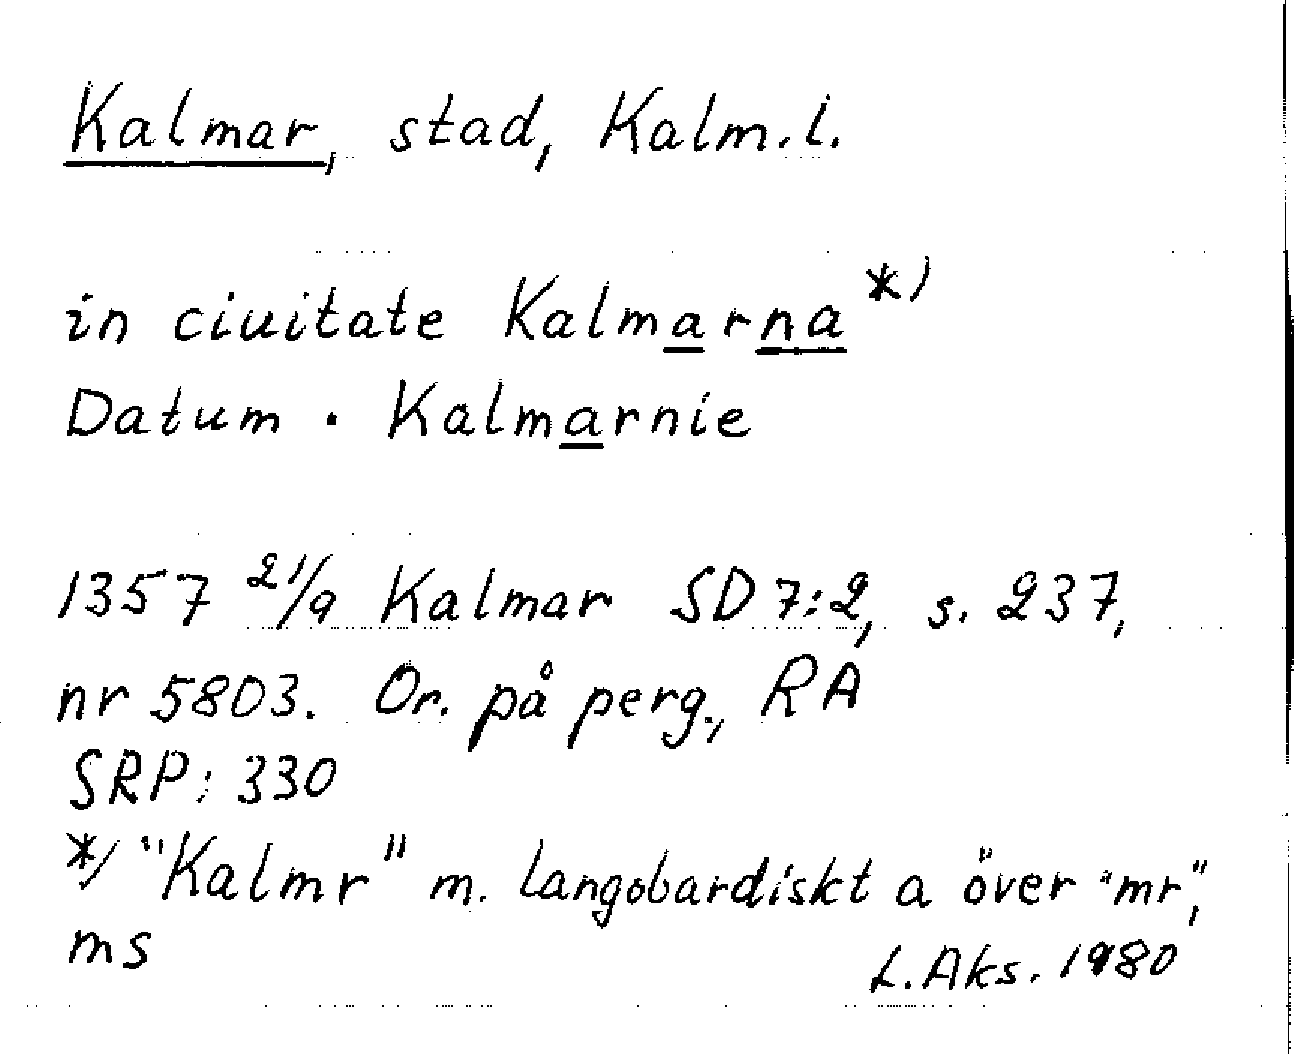 Kalmar, stad, Kalm.l.
in ciuitate Kalmarna *)
Datum · Kalmarnie
1357 21/9 Kalmar SD 7:2, s. 237,
nr 5803. Or. på perg., RA
SRP: 330
*) "Kalmr" m. langobardiskt a över "mr",
ms
L. Aks. 1980